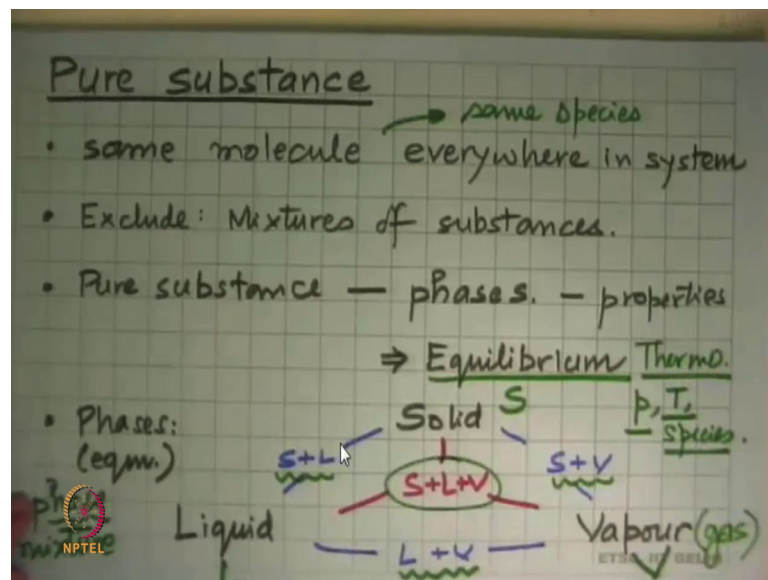 Pure substance
same species
• same molecule everywhere in system
• Exclude: Mixtures of substances.
• Pure substance — phases. – properties
⇒ Equilibrium Thermo.
• Phases: Solid S p, T,
(eqm.) S+L S+V species.
S+L+V
Liquid Vapour (gas)
L + V V
mixture
NPTEL